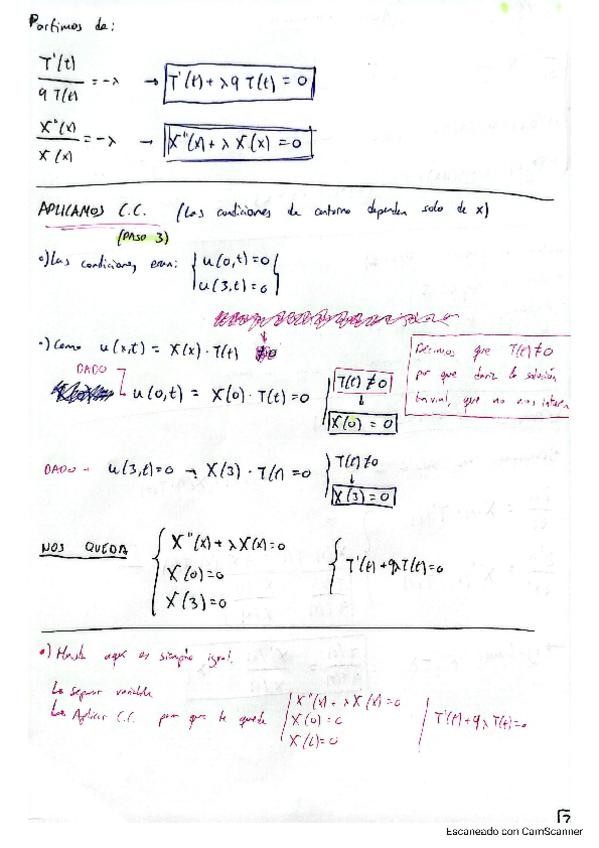 Partimos de:
T'(t) / 9 T(t) = -λ → T'(t) + λ9 T(t) = 0
X''(x) / X(x) = -λ → X''(x) + λ X(x) = 0
APLICAMOS C.C. (Las condiciones de contorno dependen solo de x)
(PASO 3)
•) Las condiciones eran: { u(0,t) = 0
u(3,t) = 0
•) Como u(x,t) = X(x) · T(t) ≠ 0
DADO
u(0,t) = X(0) · T(t) = 0
T(t) ≠ 0
↓
X(0) = 0
Decimos que T(t) ≠ 0
por que daría la solución
trivial, que no nos interesa
DADO → u(3,t) = 0 → X(3) · T(t) = 0
T(t) ≠ 0
↓
X(3) = 0
NOS QUEDA
{ X''(x) + λ X(x) = 0
X(0) = 0
X(3) = 0
{ T'(t) + 9λT(t) = 0
•) Hasta aquí es siempre igual.
Ls separ variable
Ls Aplicar C.C. por que te quede
X''(x) + λ X(x) = 0
X(0) = 0
X(L) = 0
T'(t) + 9λ T(t) = 0
Escaneado con CamScanner